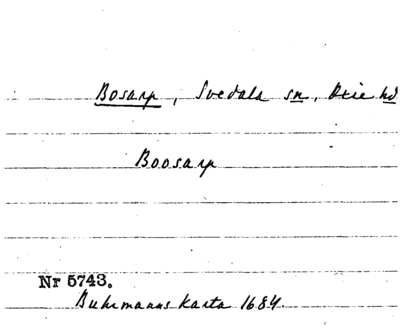 Bosarp, Svedala sn, Oxie hd
Boosarp
Nr 5743.
Buhrmanns karta 1684.